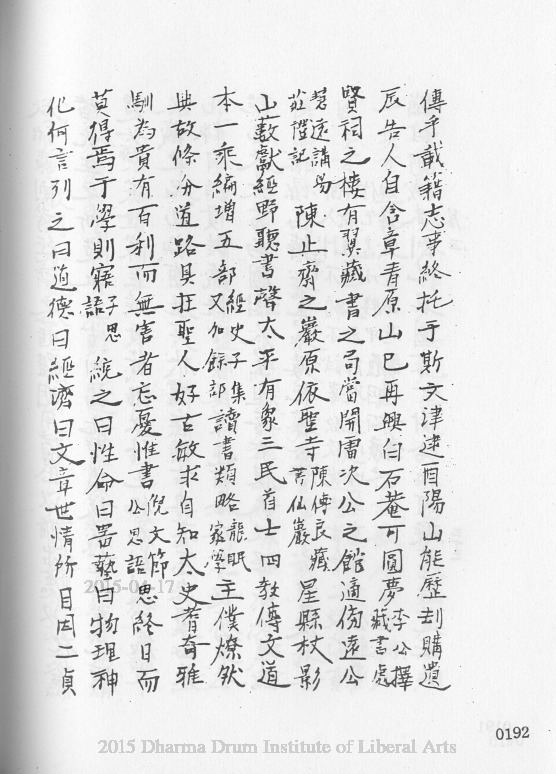 傳乎載籍志事終托于斯文津逮酉陽山能歷刦購遺
辰告人自含章青原山已再興白石菴可圓夢李公擇藏書處
賢祠之樓有翼藏書之局當開雷次公之館適傍遠公
慧遠講易莊證記陳止齋之巖原依聖寺陳傅良癀菩仙巖星縣杖影
山藪獻經野聽書聲太平有象三民首士四教傳文道
本一乘編增五部經史子集又加餘部讀書類略龍眠家學主僕燎然
典故條分道路具在聖人好古敏求自知太史耆奇雅
馴為貴有百利而無害者忘憂惟書倪文節公思語思終日而
莫得焉于學則寤子思語統之曰性命曰器藝曰物理神
化何言列之曰道德曰經濟曰文章世情所目因二貞
0192
2015-04-17
2015 Dharma Drum Institute of Liberal Arts